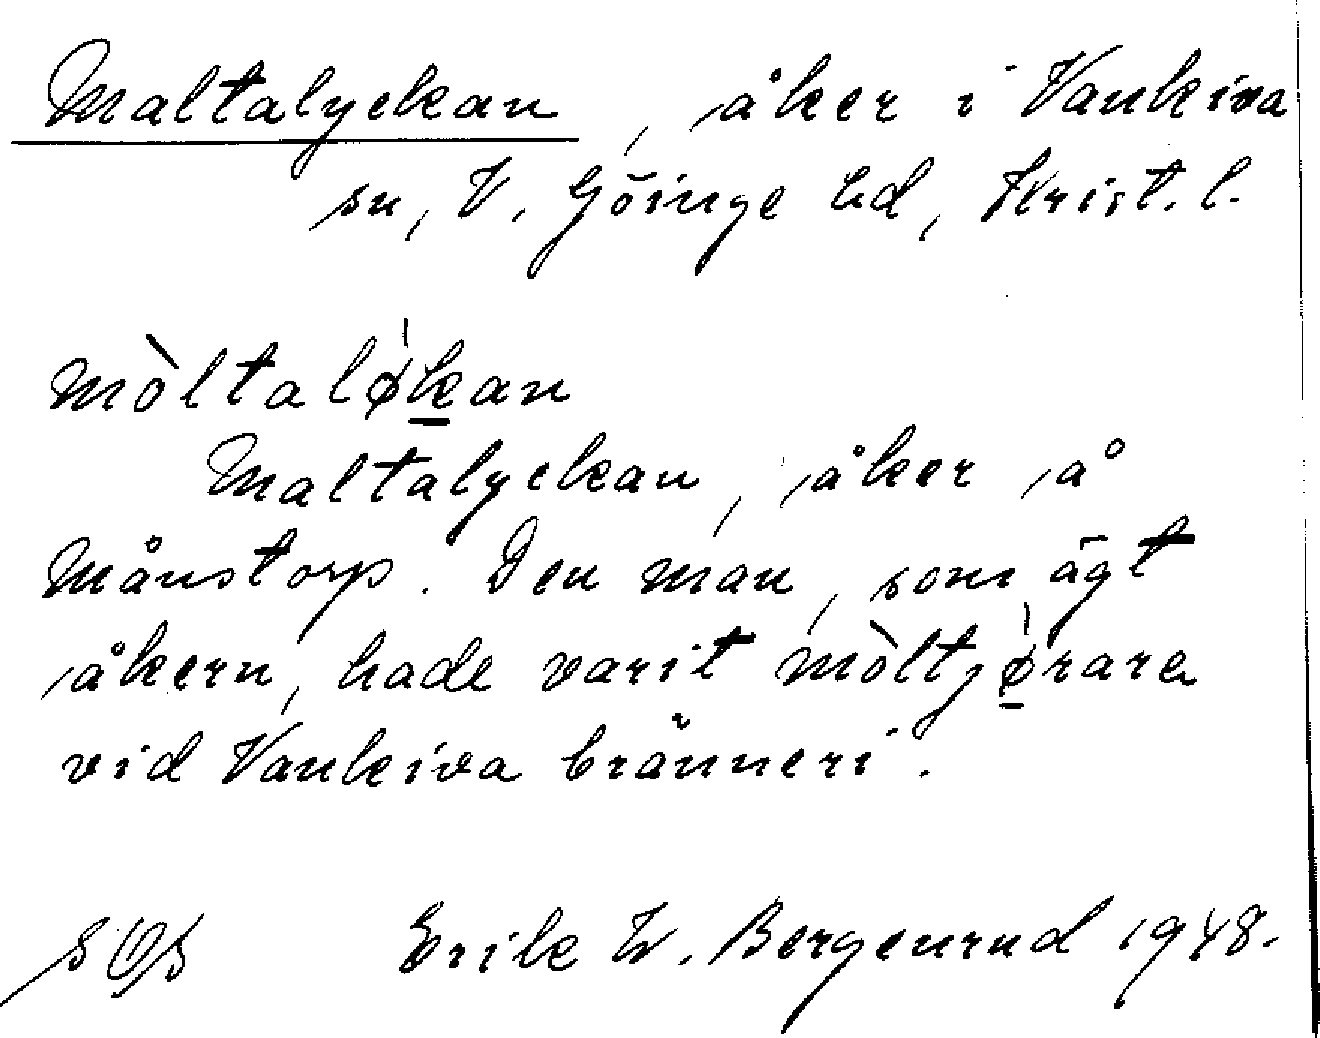 Maltalyckan, åker i Vankiva
sn, V. Göinge hd, Krist. l.
mòltaløkan
Maltalyckan, åker å
Månstorp. Den man, som ägt
åkern, hade varit mòltjørare
vid Vankiva bränneri.
SOS Erik W. Bergenrud 1948.